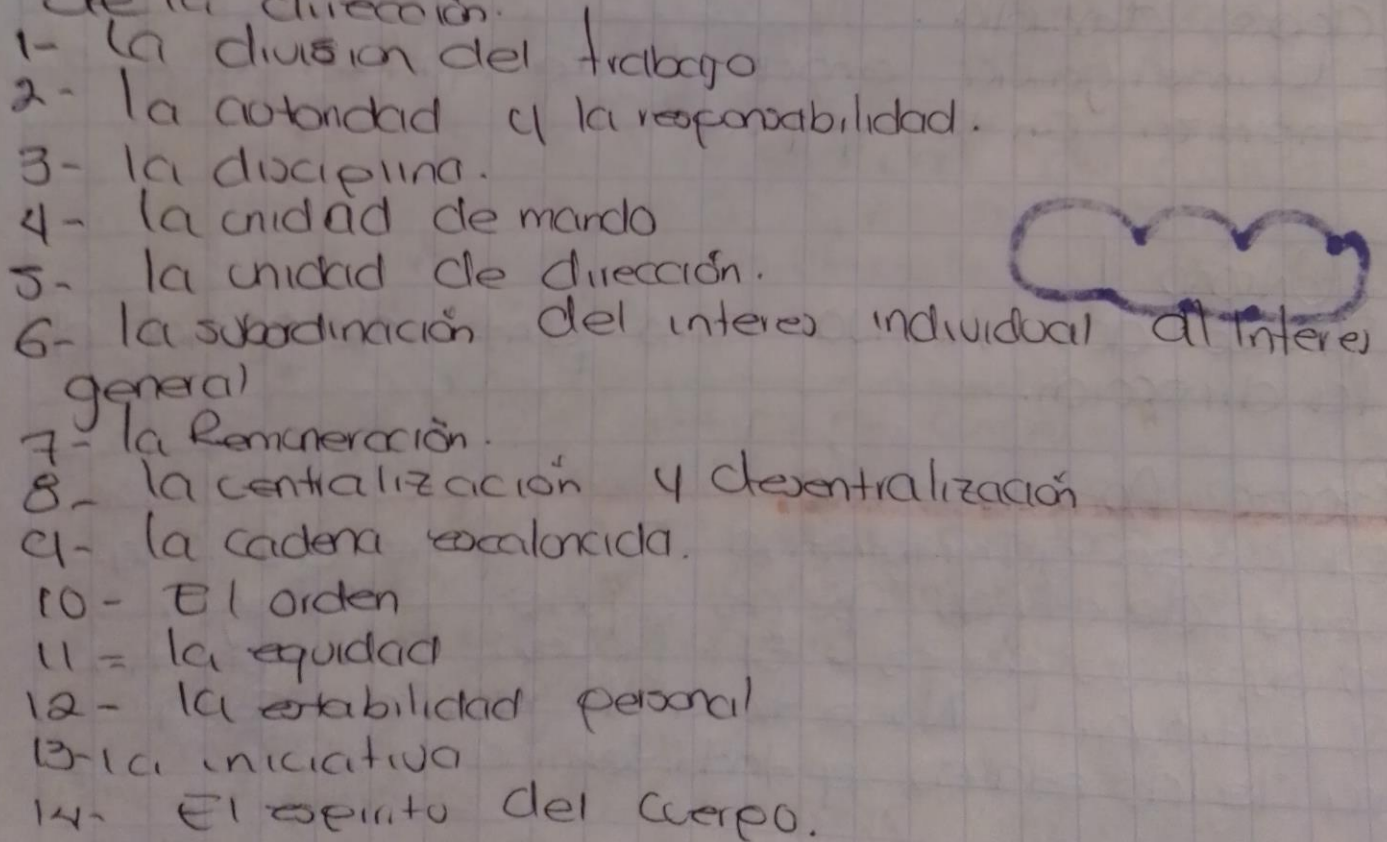 de la dirección.
1- la división del trabago
2- la autoridad y la responsabilidad.
3- la disciplina.
4- la unidad de mando
5- la unidad de dirección.
6- la subordinación del interes individual al interes
general
7- la Remuneración.
8- la centralización y desentralización
9- la cadena escalonada.
10- El orden
11= la equidad
12- la estabilidad personal
13- la iniciativa
14- El espirito del cuerpo.